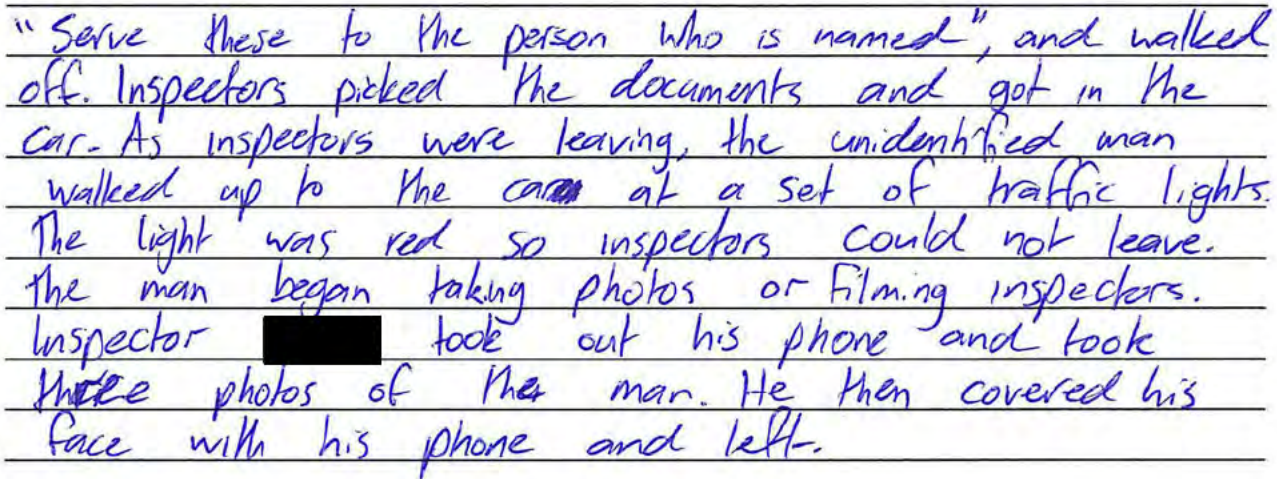 "Serve these to the person who is named", and walked
off. Inspectors picked the documents and got in the
car. As inspectors were leaving, the unidentified man
walked up to the car at a set of traffic lights.
The light was red so inspectors could not leave.
The man began taking photos or filming inspectors.
Inspector took out his phone and took
three photos of the man. He then covered his
face with his phone and left.